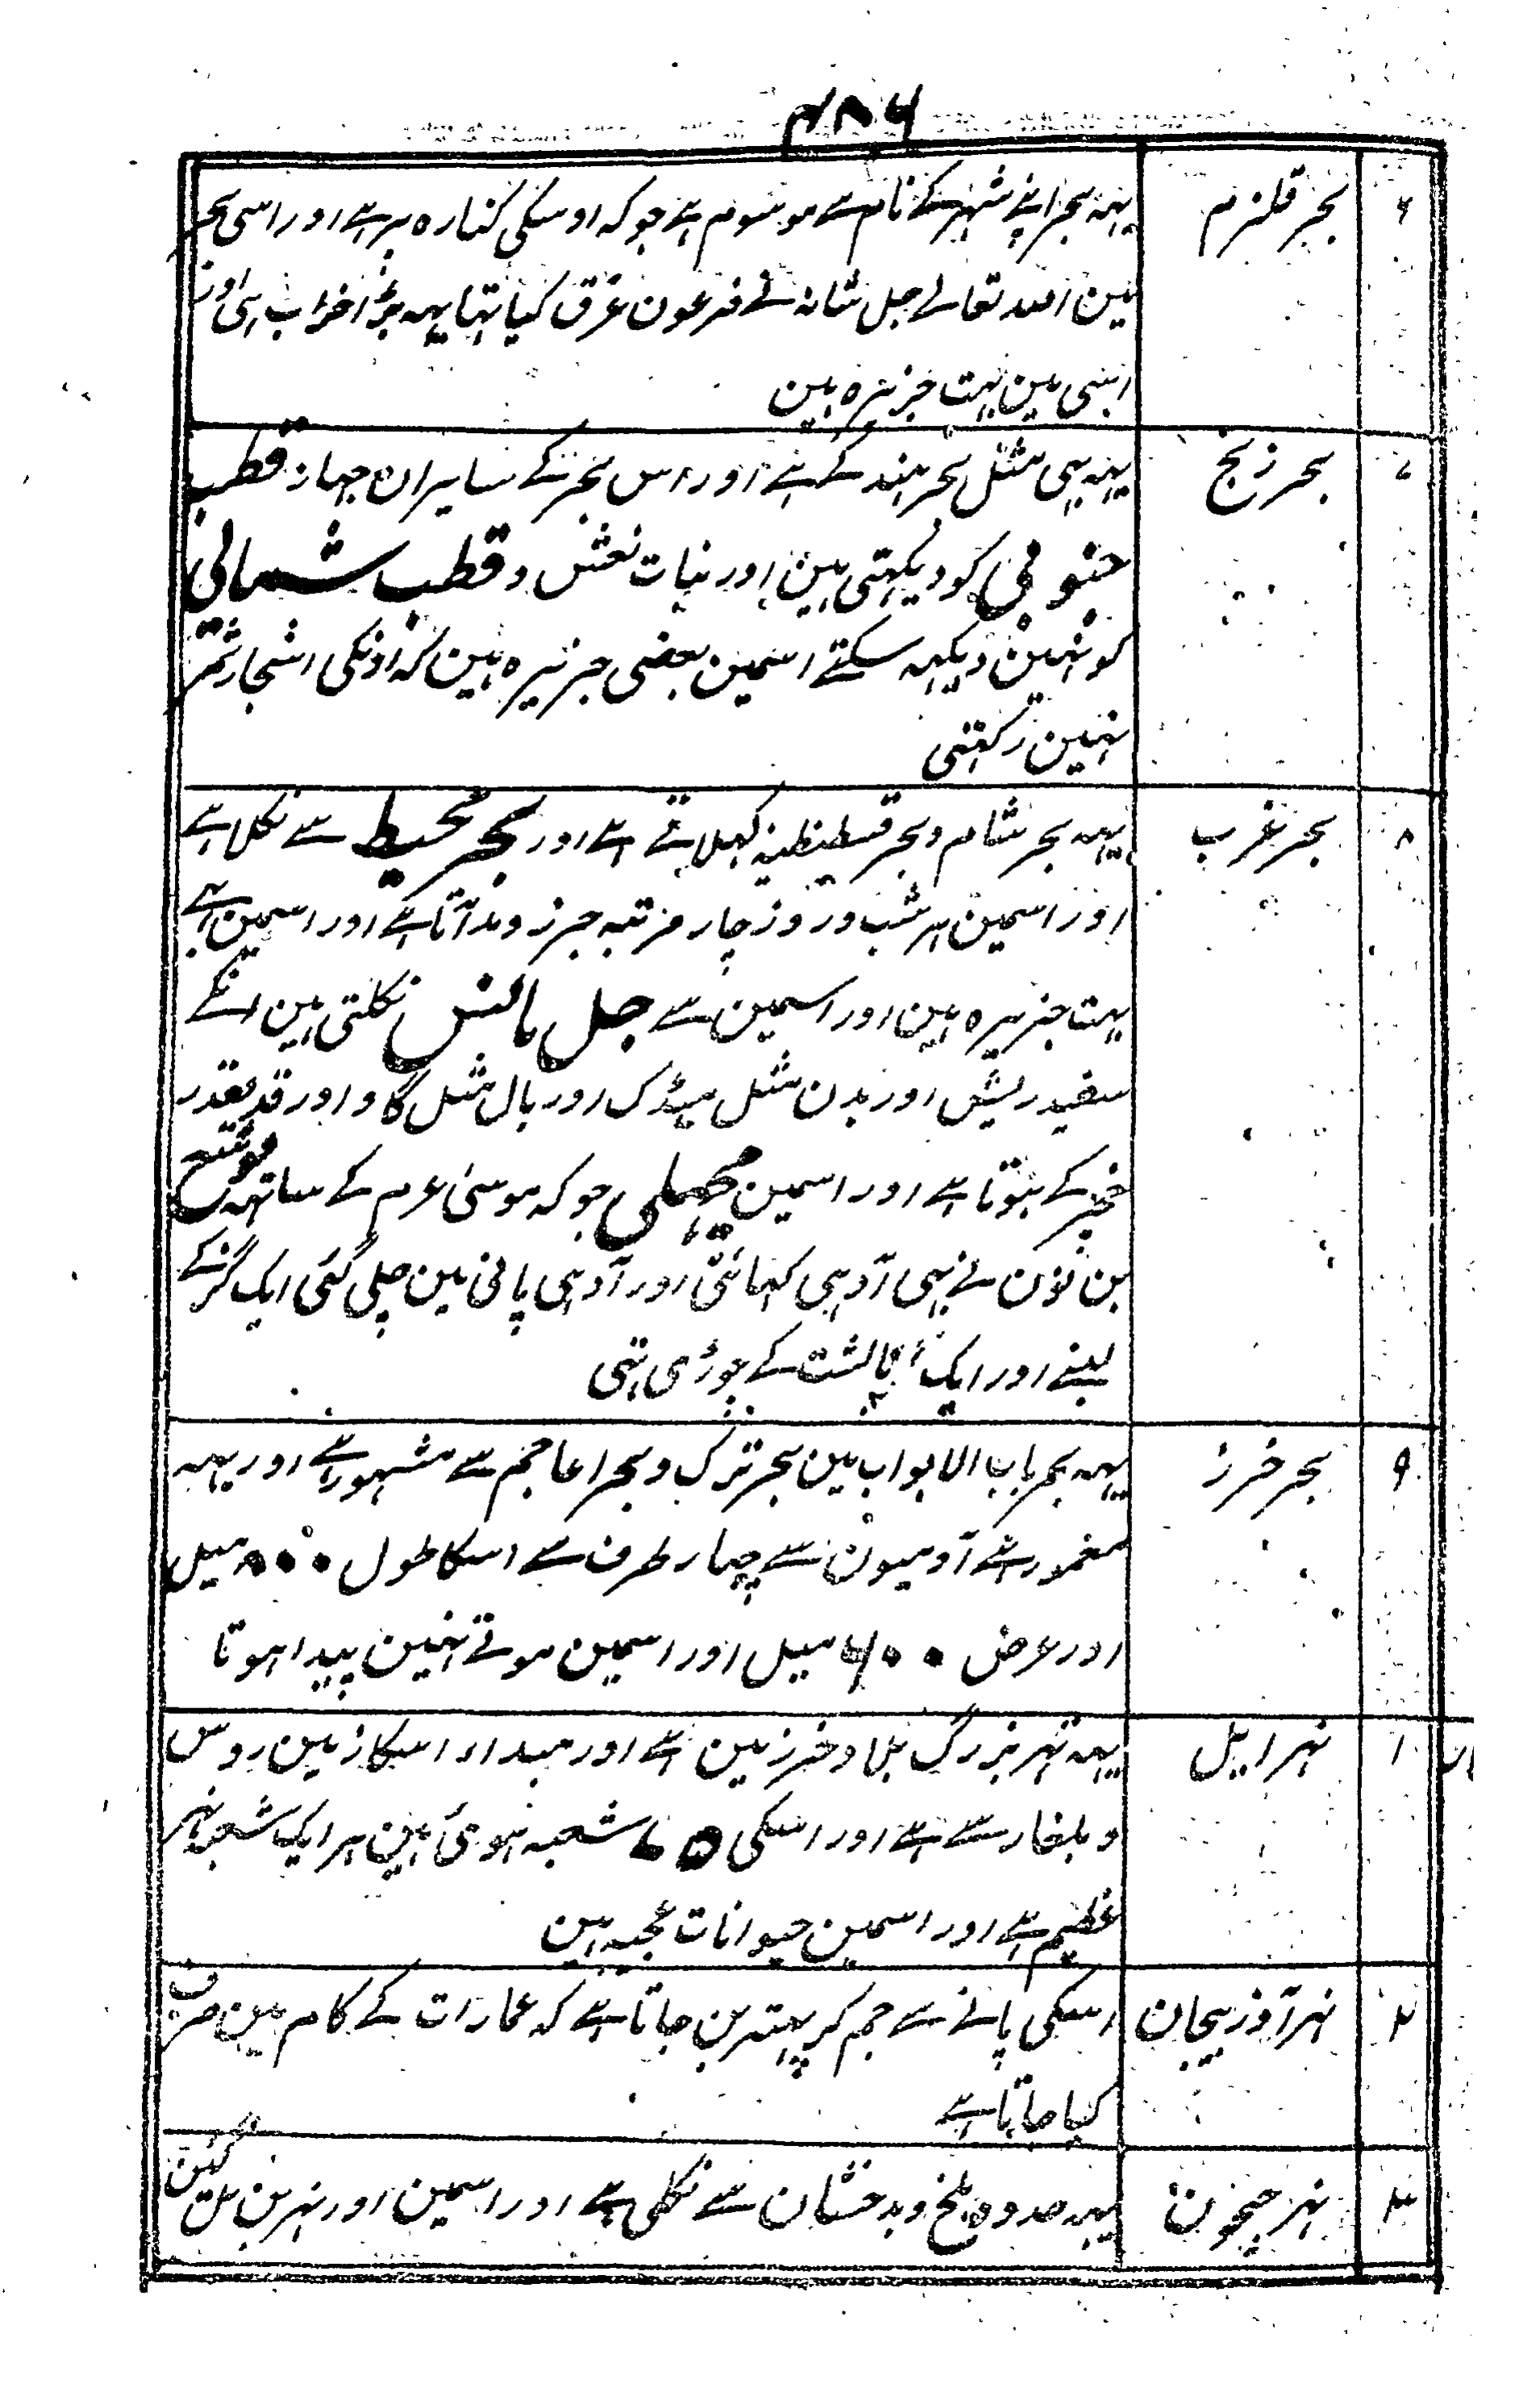 ۴۸۶
۶ بحر قلزم یہہ بحر اپنے شہر کے نام سے موسوم ہے جو کہ اوسکی کنارہ پر ہے اور اسی بحر
مین اللہ تعالے جل شانہ نے فرعون غرق کیا تہا یہہ بڑا خراب ہی اور
اسی مین بہت جزیرہ ہین
۷ بحر زنج یہہ بہی مثل بحر ہند کے ہے اور اس بحر کے سایران جہاز قطب
جنوبی کو دیکہتی ہین اور بنات نعش و قطب شمالی
کو نہین دیکہہ سکتے اسمین بعضی جزیرہ ہین کہ اونکی اشجار ثمر
نہین رکہتی
۸ بحر غرب یہہ بحر شام و بحر قسطنطنیہ کہلاتے ہے اور بحر محیط سے نکلا ہے
اور اسمین ہر شب و روز چار مرتبہ جزر و مد آتا ہے اور اسمین ہے
بہت جزیرہ ہین اور اسمین سے جل مانس نکلتی ہین انکے
سفید ریش اور بدن مثل مینڈک اور بال مثل گاو اور قد بقدر
خچر کے ہوتا ہے اور اسمین مچہلی جو کہ موسیٰ عرم کے ساتہہ یوشع
بن نون نے بہی آدہی کہائی اور آدہی پانی مین چلی گئی ایک گز کے
لمبے اور ایک بالشت کے چوڑی تہی
۹ بحر خرز یہہ بحر باب الابواب مین بحر ترک و بحر اعاجم سے مشہور ہے اور یہہ
معمور ہے آدمیون سے چہار طرف سے اسکا طول ۸۰۰ میل
اور عرض ۶۰۰ میل اور اسمین موتے نہین پیدا ہوتا
۱ نہر ایل یہہ نہر بزرگ بلاد خرز مین ہے اور مبداء اسکا زمین روس
و بلغار سے ہے اور اسکی ۷۵ شعبہ ہوئ ہین ہر ایک شعبہ نہر
عظیم ہے اور اسمین حیوانات عجیبہ ہین
۲ نہر آذربیجان اسکی پانے سے جم کر پتہر بن جاتا ہے کہ عمارات کے کام مین صرف
کیا جاتا ہے
۳ نہر جیحون یہہ حدود بلخ و بدخشان سے نکلی ہے اور اسمین اور نہرین مل گئین